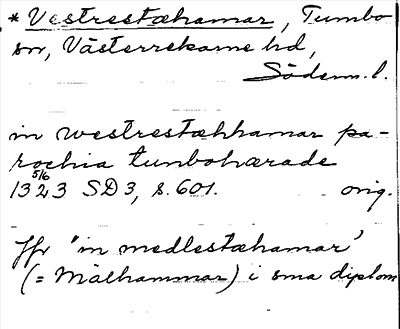 * Vestrestæhamar, Tumbo
sn, Västerrekarne hd,
Söderm. l.
in westrestæhhamar pa-
rochia tumbohærade
1323 5/6 SD 3, s. 601. orig.
Jfr "in medlestæhamar"
(= Mälhammar) i sma diplom